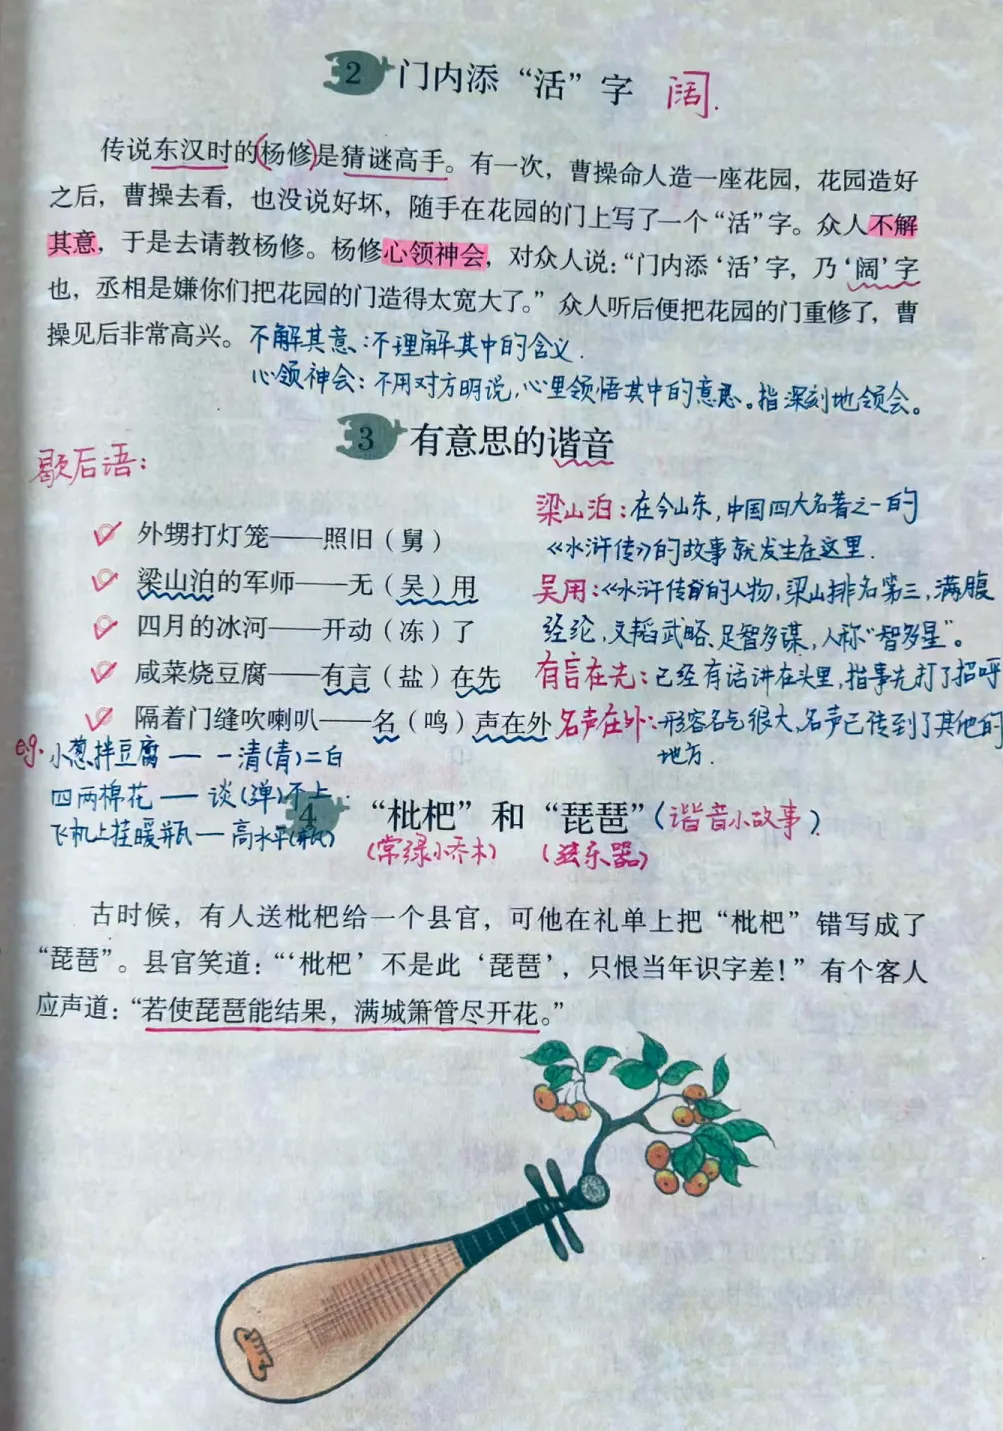 2 门内添“活”字 阔.
传说东汉时的(杨修)是猜谜高手。有一次，曹操命人造一座花园，花园造好
之后，曹操去看，也没说好坏，随手在花园的门上写了一个“活”字。众人不解
其意，于是去请教杨修。杨修心领神会，对众人说：“门内添‘活’字，乃‘阔’字
也，丞相是嫌你们把花园的门造得太宽大了。”众人听后便把花园的门重修了，曹
操见后非常高兴。
不解其意：不理解其中的含义.
心领神会：不用对方明说，心里领悟其中的意思。指深刻地领会。
3 有意思的谐音
歇后语：
外甥打灯笼——照旧（舅）
梁山泊的军师——无（吴）用
四月的冰河——开动（冻）了
咸菜烧豆腐——有言（盐）在先
隔着门缝吹喇叭——名（鸣）声在外
梁山泊：在今山东，中国四大名著之一的
《水浒传》的故事就发生在这里.
吴用：《水浒传》的人物，梁山排名第三，满腹
经纶，文韬武略、足智多谋，人称“智多星”。
有言在先：已经有话讲在头里，指事先打了招呼
名声在外：形容名气很大，名声已传到了其他的
地方.
eg. 小葱拌豆腐 — 一清(青)二白
四两棉花 — 谈(弹)不上.
飞机上挂暖瓶 — 高水平(瓶)
4 “枇杷”和“琵琶”（谐音小故事）
(常绿小乔木) (弦乐器)
古时候，有人送枇杷给一个县官，可他在礼单上把“枇杷”错写成了
“琵琶”。县官笑道：“‘枇杷’不是此‘琵琶’，只恨当年识字差！”有个客人
应声道：“若使琵琶能结果，满城箫管尽开花。”